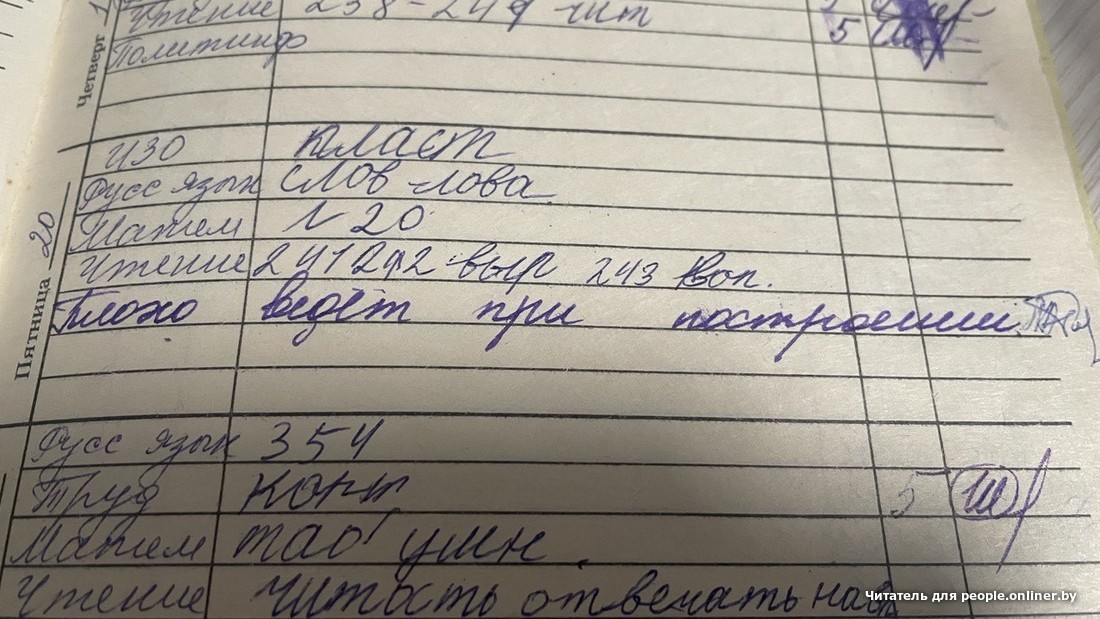 Чтение 238-249 чит 5
Политинф
Четверг
ИЗО класт
Русс язык слов слова
Матем № 20
Чтение 241 242 выр 243 воп.
Плохо ведёт при построении
Пятница 20
Русс язык 354
Труд карт 5
Матем таб умн.
Чтение читость отвечать на
Читатель для people.onliner.by